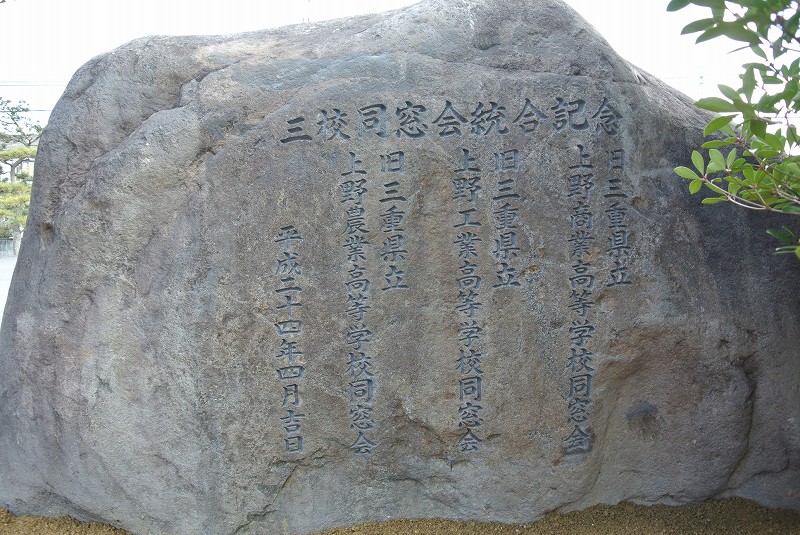 三校同窓会統合記念
旧三重県立
上野商業高等学校同窓会
旧三重県立
上野工業高等学校同窓会
旧三重県立
上野農業高等学校同窓会
平成二十四年四月吉日